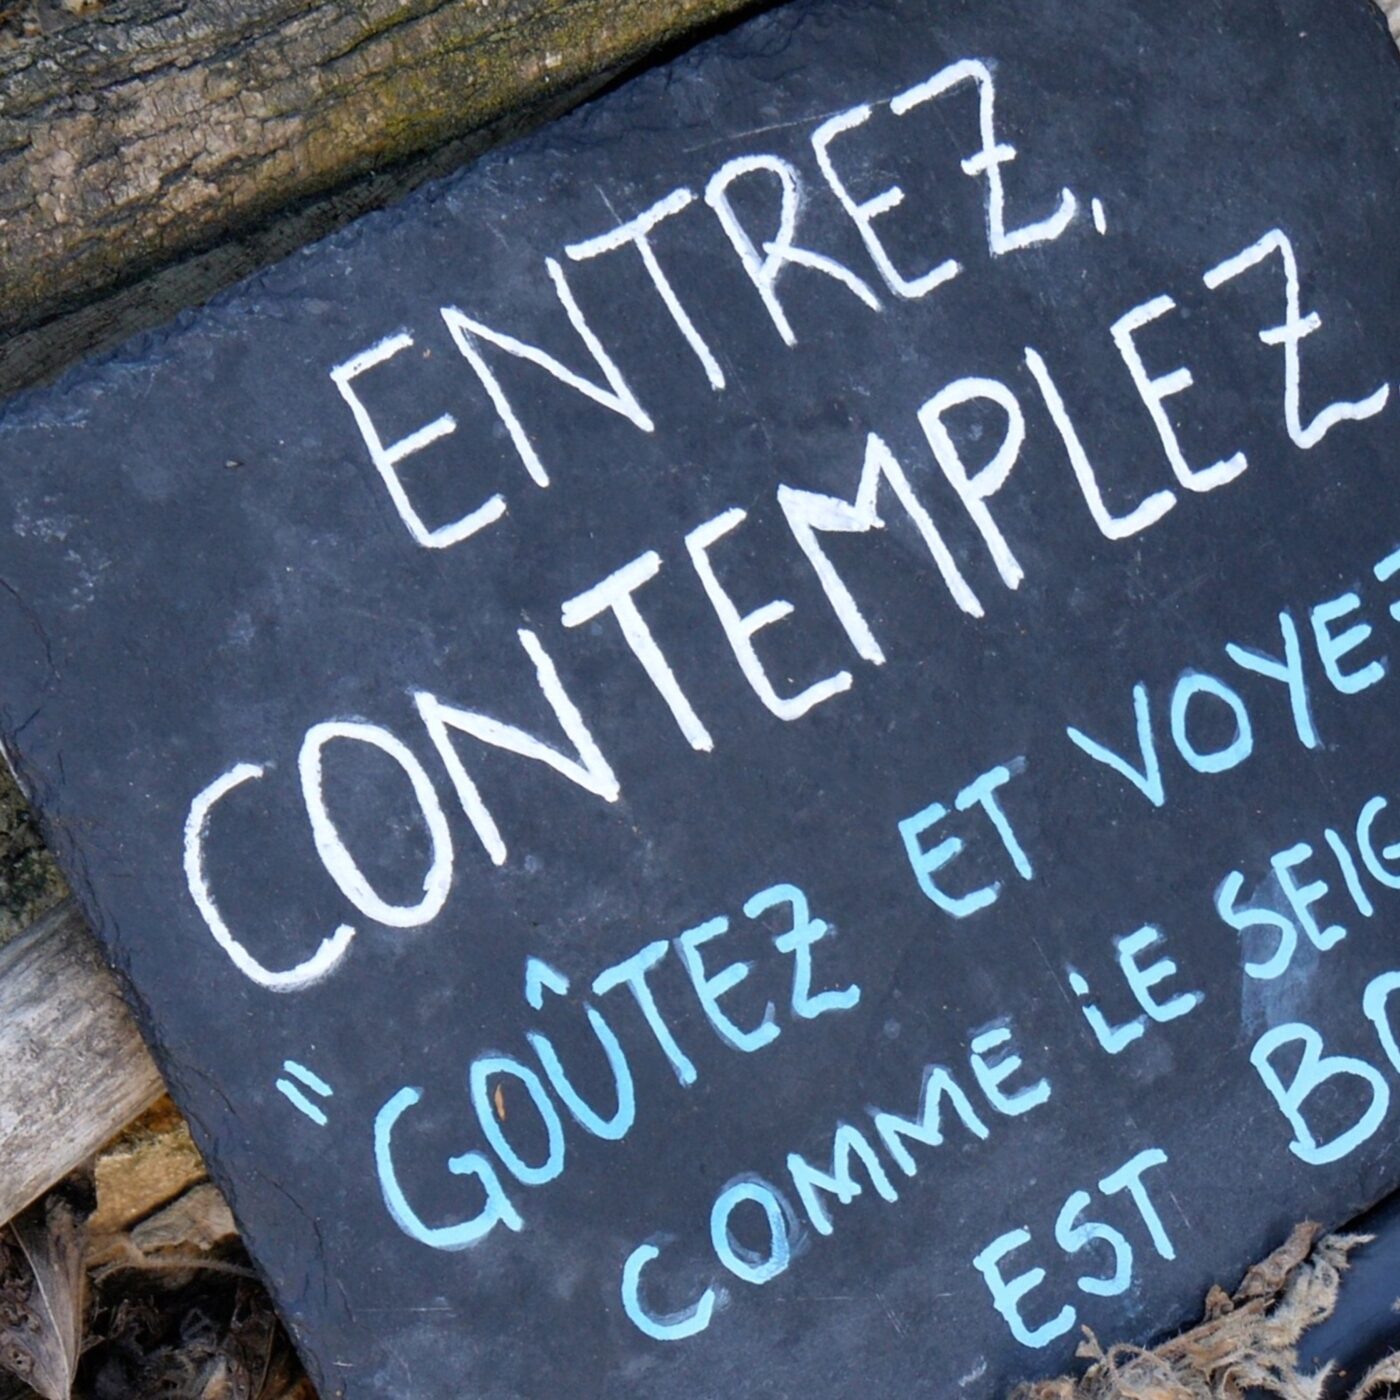 ENTREZ,
CONTEMPLEZ
"GOÛTEZ ET VOYEZ
COMME LE
EST